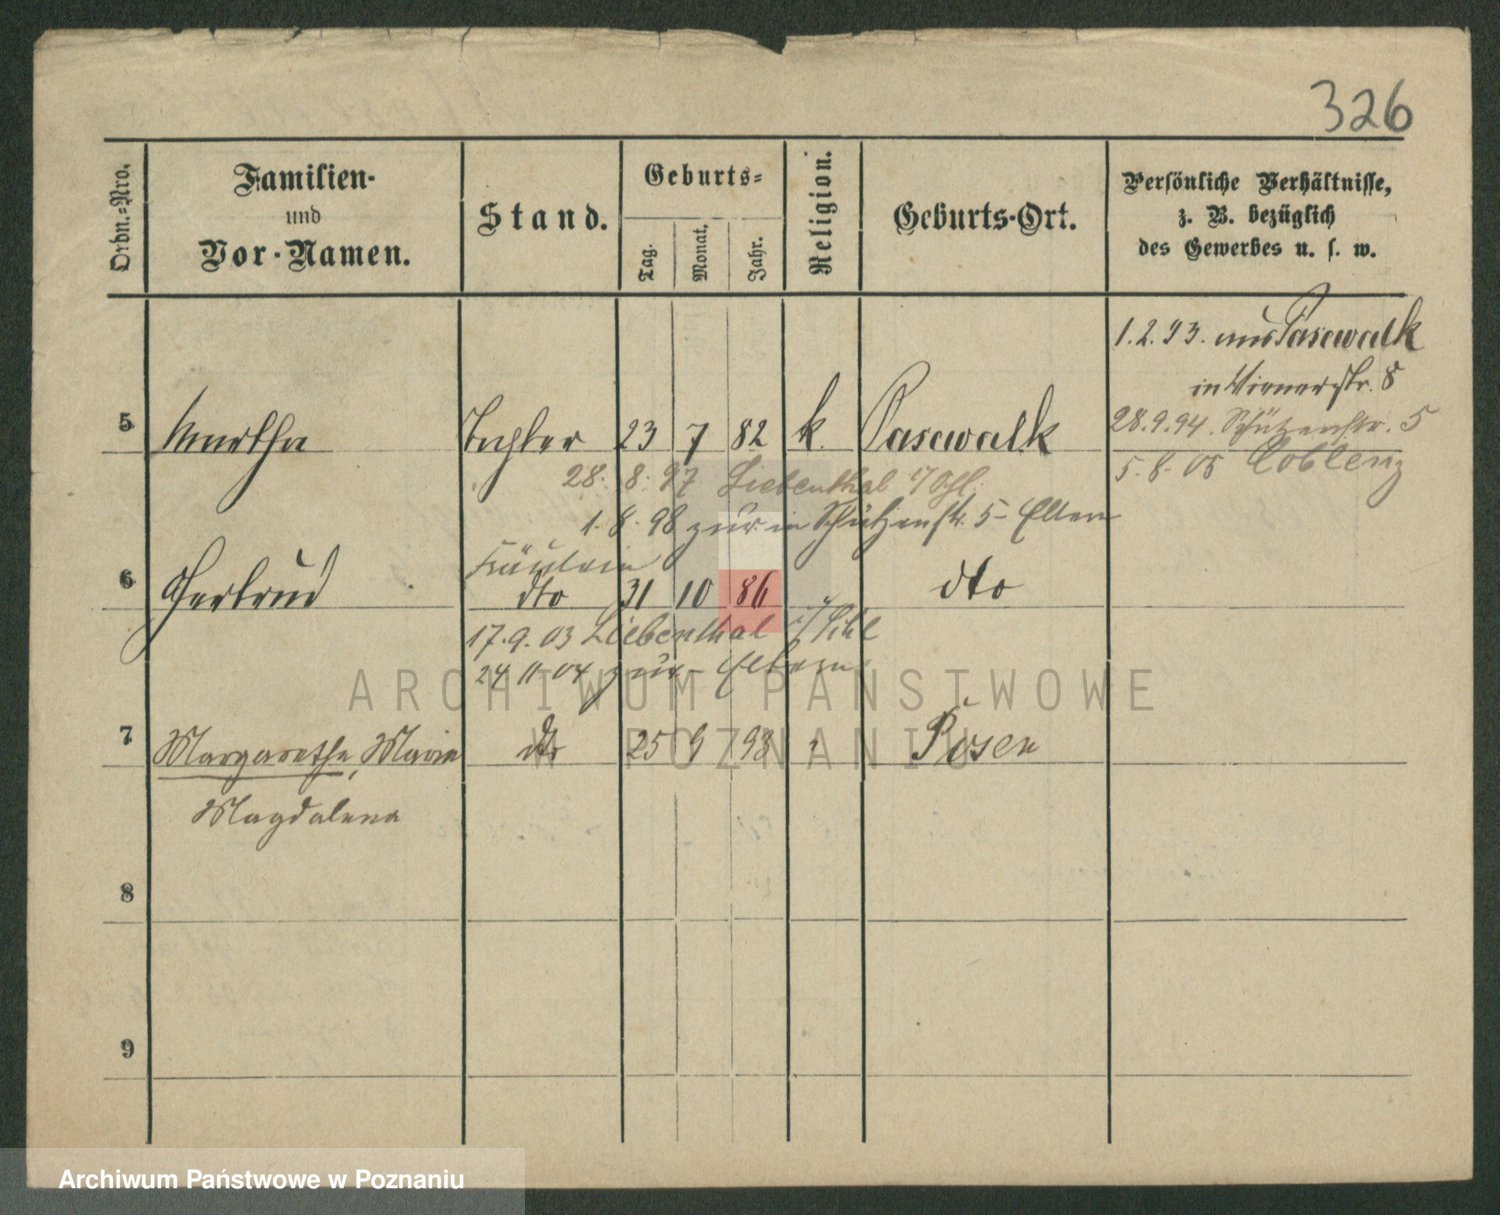 326
Ordn.=Nro.
Familien-
und
Vor-Namen.
Stand.
Geburts=
Tag.
Monat.
Jahr.
Religion.
Geburts-Ort.
Persönliche Verhältnisse,
z. B. bezüglich
des Gewerbes u. s. w.
1.2.93. aus Pasewalk
in Wienerstr. 8
5 Martha Tochter 23 7 82 k. Pasewalk
28.9.94. Schützenstr. 5
5.8.05 Coblenz
28. 8. 97 Liebenthal
1. 8. 98 zur. in Schützenstr. 5 Eltern
Fräulein
6 Gertrud dto 31 10 86 " dto
17.9.03 Liebenthal
24 11 04 zur. Eltern
7 Margarethe, Maria dto 25 9 93 " Posen
Magdalena
8
9
ARCHIWUM PAŃSTWOWE
W POZNANIU
Archiwum Państwowe w Poznaniu